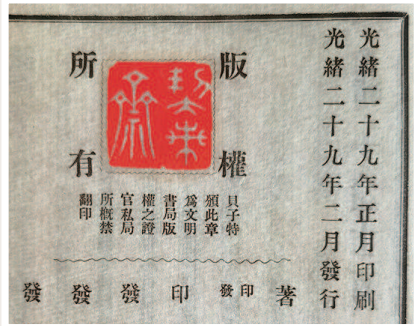 光緒二十九年正月印刷
光緒二十九年二月發行
版權
所有
貝子特
頒此章
爲文明
書局版
權之證
官私局
所概禁
翻印
著
印發
印
發
發
發